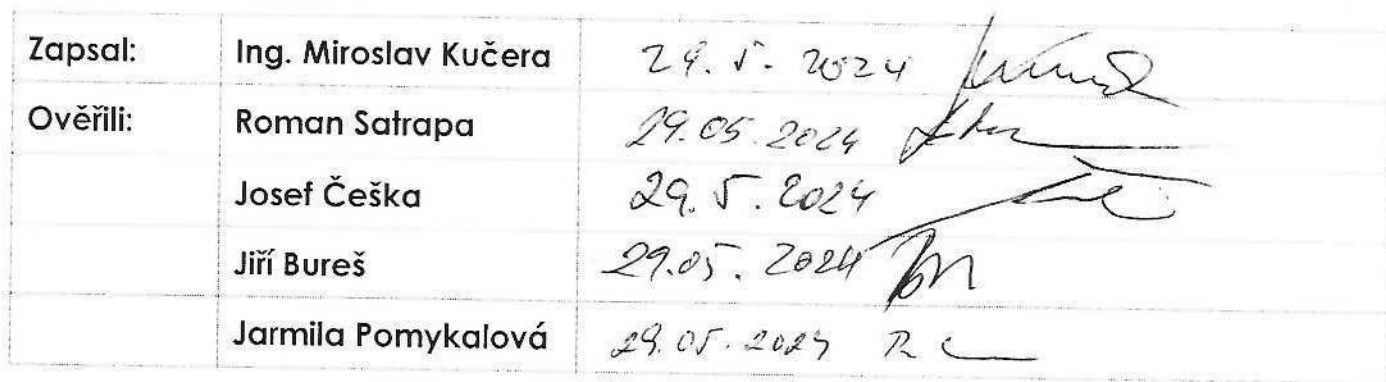 Zapsal: Ing. Miroslav Kučera 29. 5. 2024
Ověřili: Roman Satrapa 29.05.2024
Josef Češka 29. 5. 2024
Jiří Bureš 29.05. 2024
Jarmila Pomykalová 29.05.2024